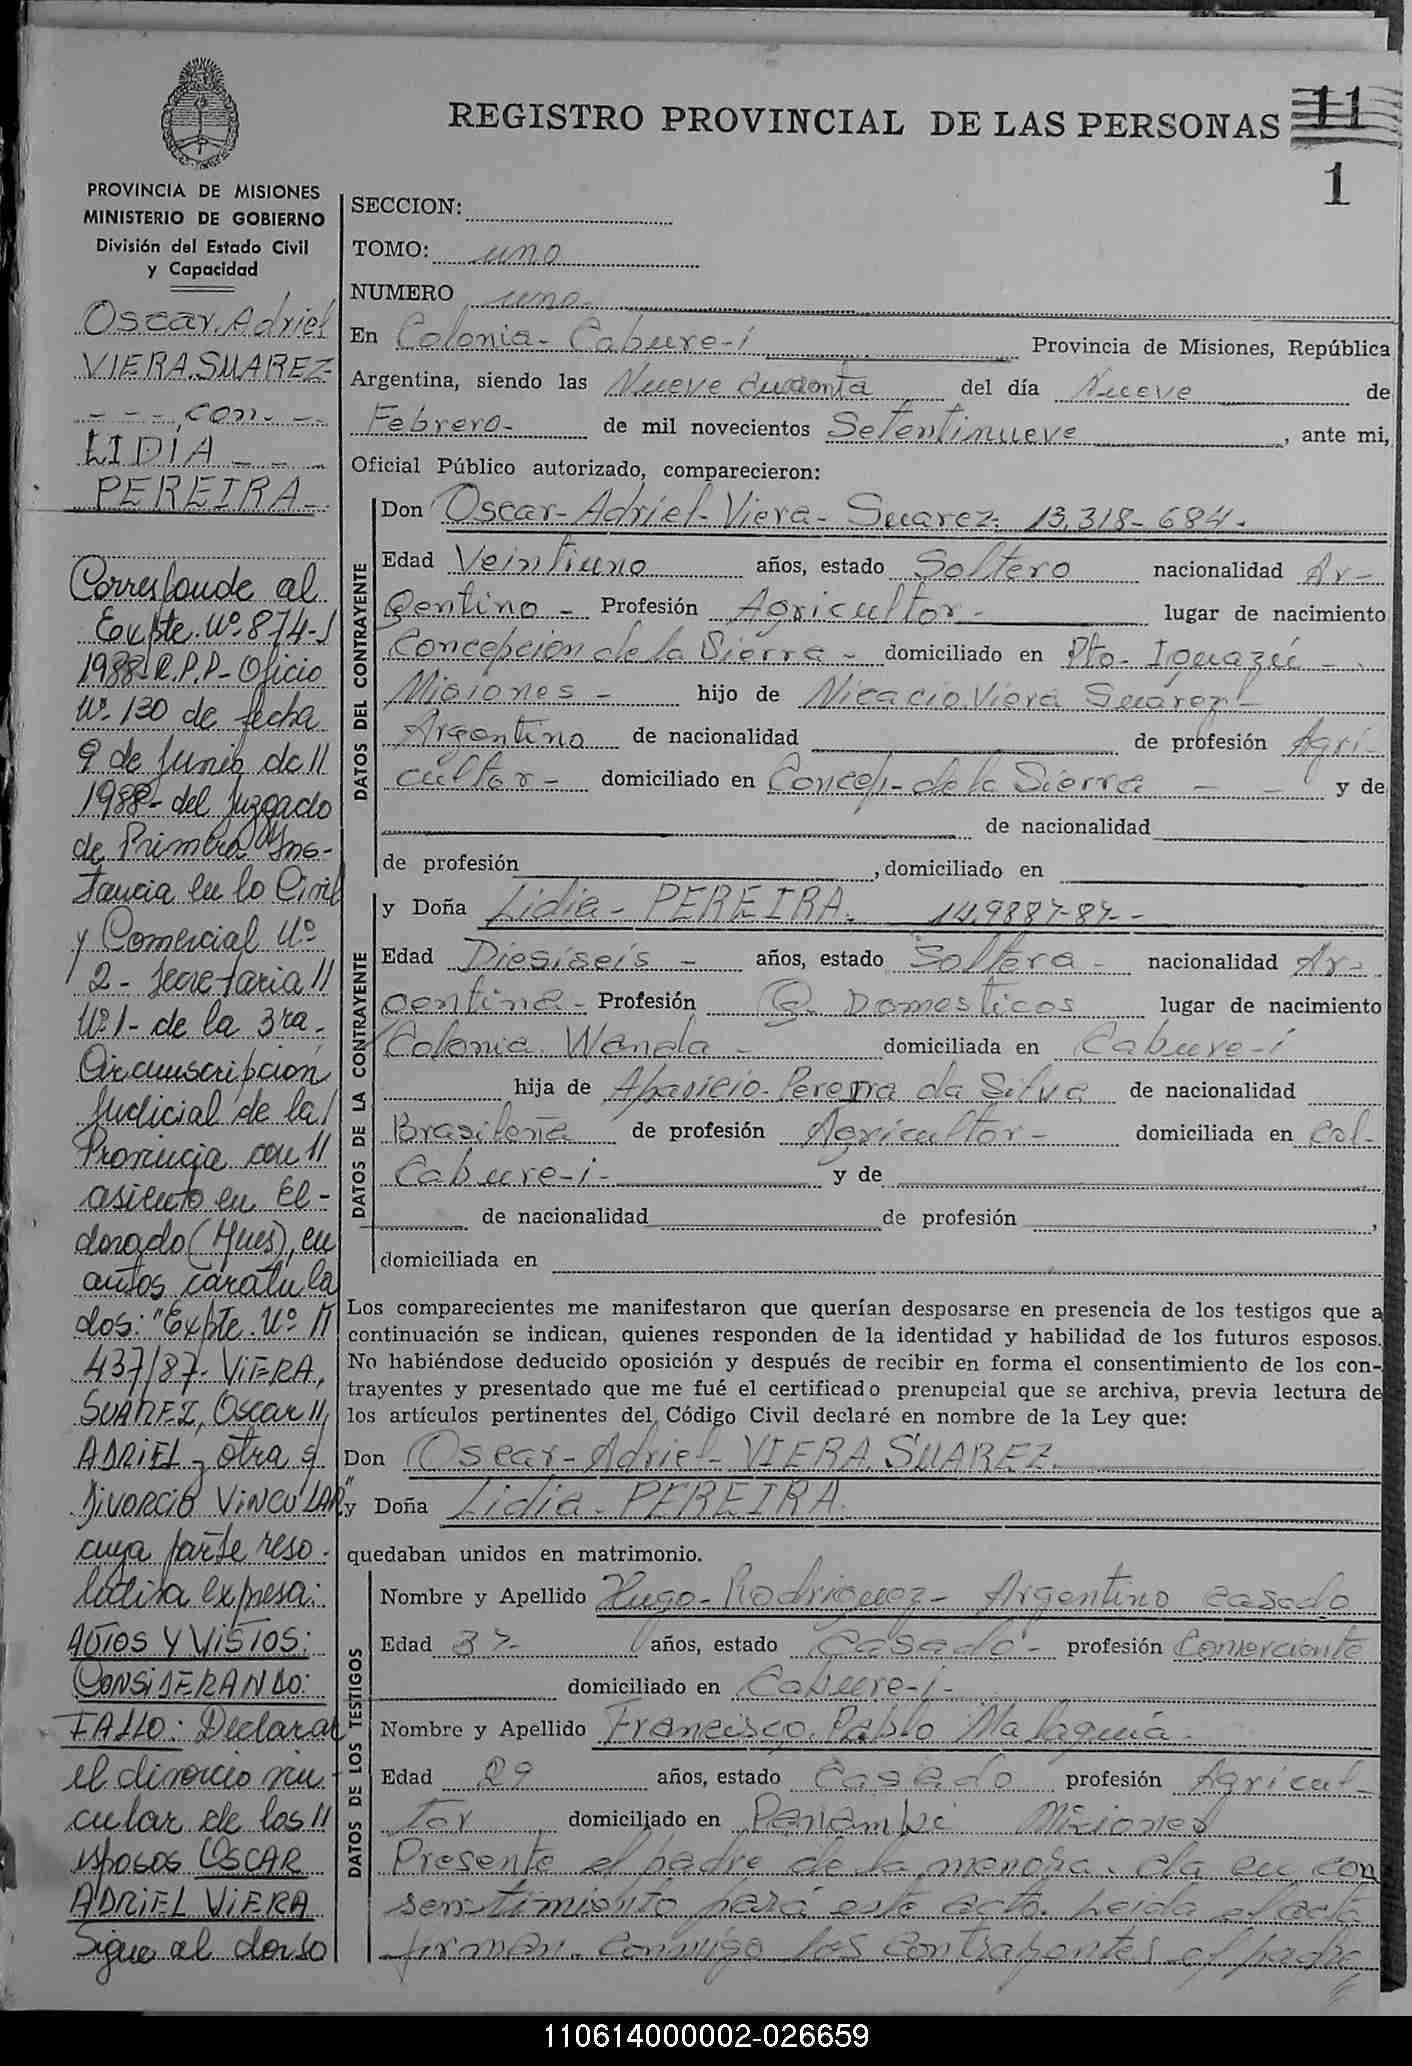 REGISTRO PROVINCIAL DE LAS PERSONAS 11
1
PROVINCIA DE MISIONES
MINISTERIO DE GOBIERNO
División del Estado Civil
y Capacidad
Oscar Adriel
VIERA SUAREZ
- - - con - -
LIDIA - - -
PEREIRA -
Corresponde al
Expte. Nº 874-J
1988-R.P.P- Oficio
Nº 130 de fecha
9 de Junio de //
1988- del Juzgado
de Primera Ins-
tancia en lo Civil
y Comercial Nº
2- Secretaria //
Nº 1- de la 3ra.
Circunscripción
Judicial de la /
Provincia con //
asiento en El-
dorado (Mnes), en
autos caratula
dos: "Expte. Nº //
437/87- ViERA,
SUAREZ, Oscar //
ADRiEL y otra s/
DiVORCiO ViNCULAR"
cuya parte reso-
lutiva expresa:
AUTOS Y ViSTOS:
CONSiDERANDO:
FALLO: Declarar
el divorcio vin-
cular de los //
esposos OSCAR
ADRiEL ViERA
Sigue al dorso
SECCION:
TOMO: uno
NUMERO uno-
En Colonia- Cabure-i Provincia de Misiones, República
Argentina, siendo las Nueve cuarenta del día Nueve de
Febrero- de mil novecientos Setentinueve, ante mi,
Oficial Público autorizado, comparecieron:
DATOS DEL CONTRAYENTE
Don Oscar- Adriel- Viera- Suarez- 13.318-684-
Edad Veintiuno años, estado Soltero nacionalidad Ar-
gentino- Profesión Agricultor- lugar de nacimiento
Concepcion de la Sierra- domiciliado en Pto- Iguazú-
Misiones- hijo de Nicacio Viera Suárez-
Argentino de nacionalidad de profesión Agri-
cultor- domiciliado en Concep- de la Sierra - - y de
de nacionalidad
de profesión , domiciliado en
DATOS DE LA CONTRAYENTE
y Doña Lidia- PEREIRA.
Edad Diesiseis- años, estado Soltera- nacionalidad Ar-
gentina- Profesión Q. Domesticos lugar de nacimiento
Colonia Wanda- domiciliada en Cabure-i
hija de Aparicio- Pereira da Silva de nacionalidad
Brasileña de profesión Agricultor- domiciliada en Col-
Cabure-i- y de
de nacionalidad de profesión ,
domiciliada en
Los comparecientes me manifestaron que querían desposarse en presencia de los testigos que a
continuación se indican, quienes responden de la identidad y habilidad de los futuros esposos.
No habiéndose deducido oposición y después de recibir en forma el consentimiento de los con-
trayentes y presentado que me fué el certificado prenupcial que se archiva, previa lectura de
los artículos pertinentes del Código Civil declaré en nombre de la Ley que:
Don Oscar- Adriel- VIERA SUAREZ
y Doña Lidia- PEREIRA.
quedaban unidos en matrimonio.
DATOS DE LOS TESTIGOS
Nombre y Apellido Hugo- Rodriguez- Argentino casado
Edad 37- años, estado Casado- profesión Comerciante
domiciliado en Cabure-i-
Nombre y Apellido Francisco Pablo
Edad 29 años, estado Casado profesión Agricul-
tor domiciliado en Panambi Misiones
Presente el padre de la menora, da su con
sentimiento para este acto. Leida el acta
firman conmigo los contrayentes el padre
110614000002-026659